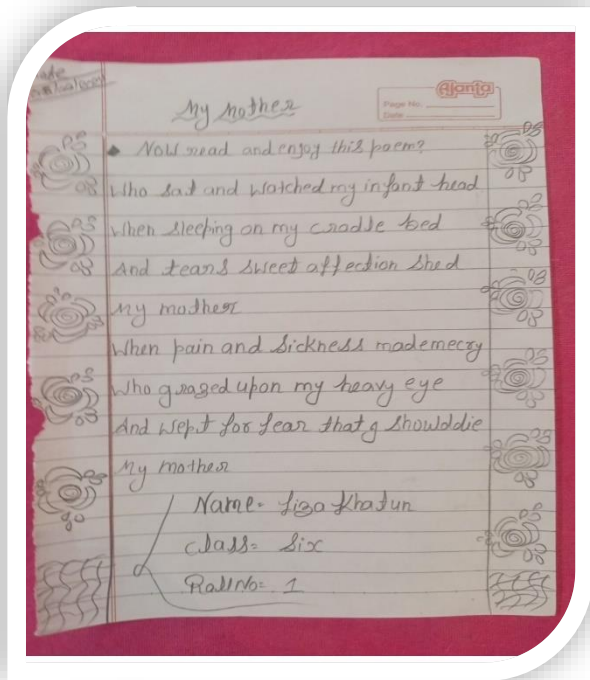 Date
Ajanta
Page No.
Date
My Mother
Now read and enjoy this poem?
Who sat and watched my infant head
When sleeping on my cradle bed
And tears sweet affection shed
My mother
When pain and sickness mademecry
Who grazed upon my heavy eye
And wept for fear that g showlddie
My mother
Name- Liza Khatun
Class= Six
RollNo= 1